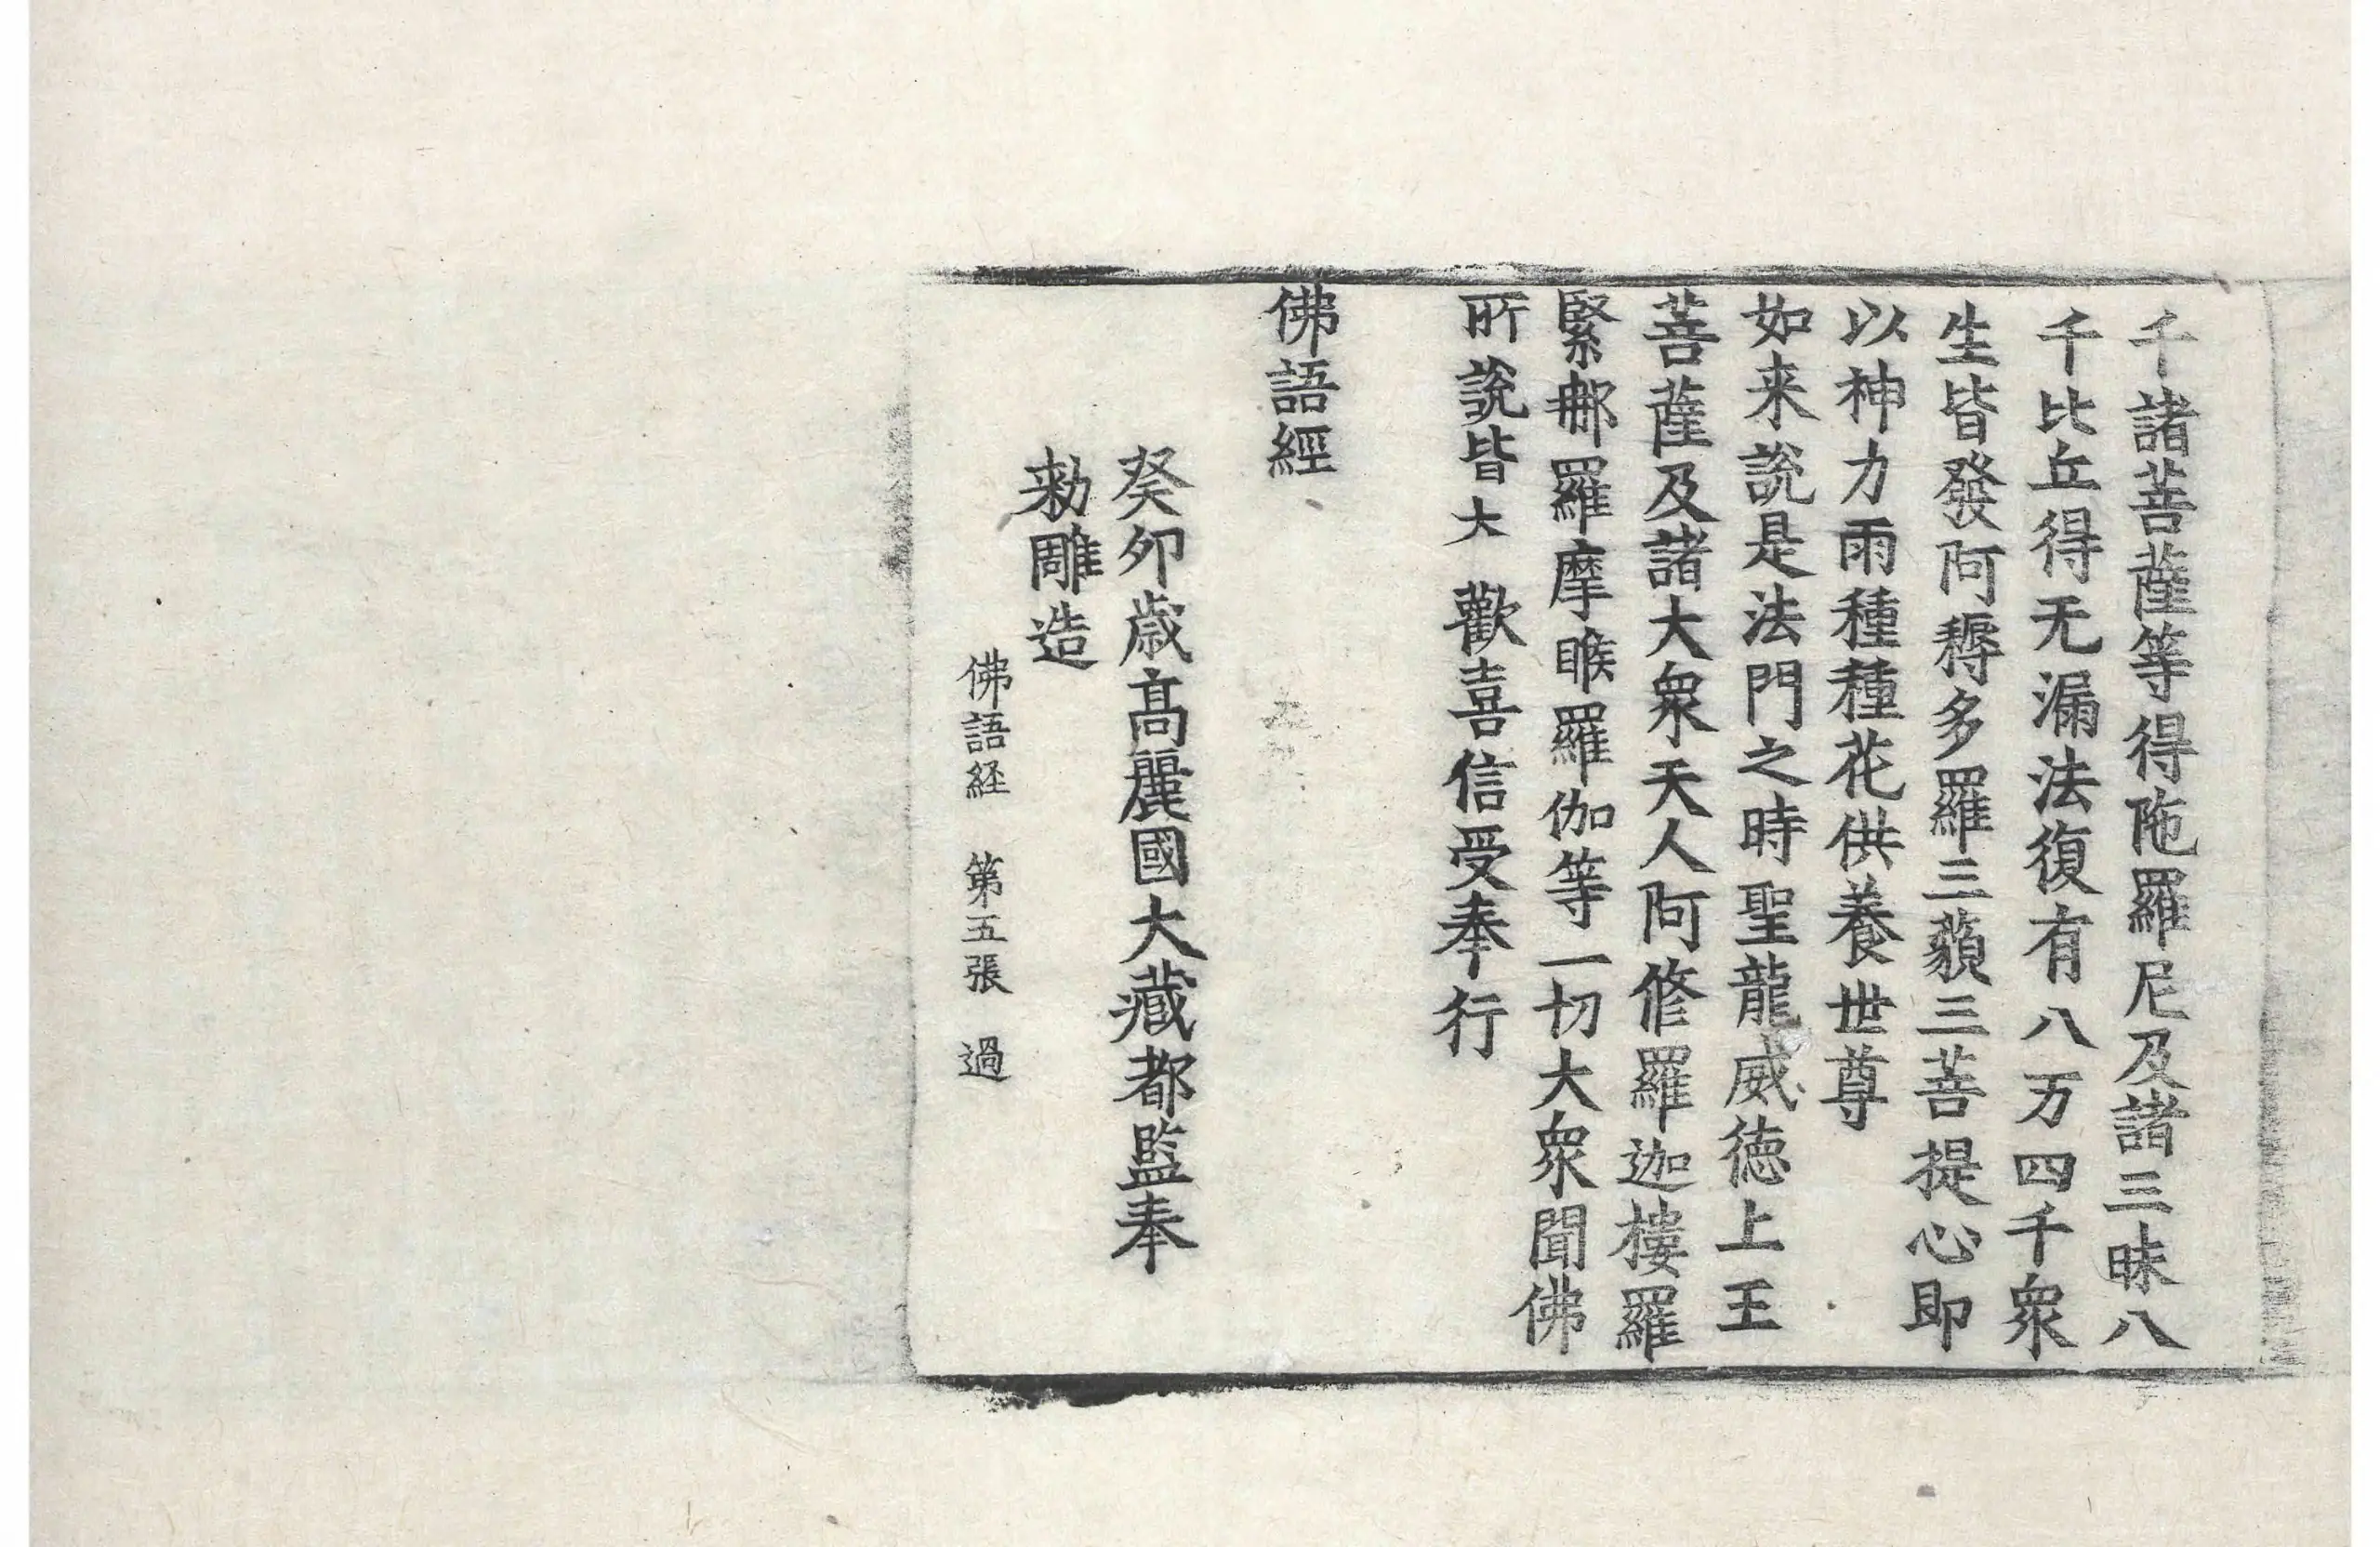 千諸菩薩等得陁羅尼及諸三昧八
千比丘得无漏法復有八万四千衆
生皆發阿耨多羅三藐三菩提心即
以神力雨種種花供養世尊
如来說是法門之時聖龍威徳上王
菩薩及諸大衆天人阿修羅迦樓羅
緊那羅摩睺羅伽等一切大衆聞佛
所說皆大歡喜信受奉行
佛語經
癸卯歲髙麗國大藏都監奉
勑雕造
佛語経 第五張 過